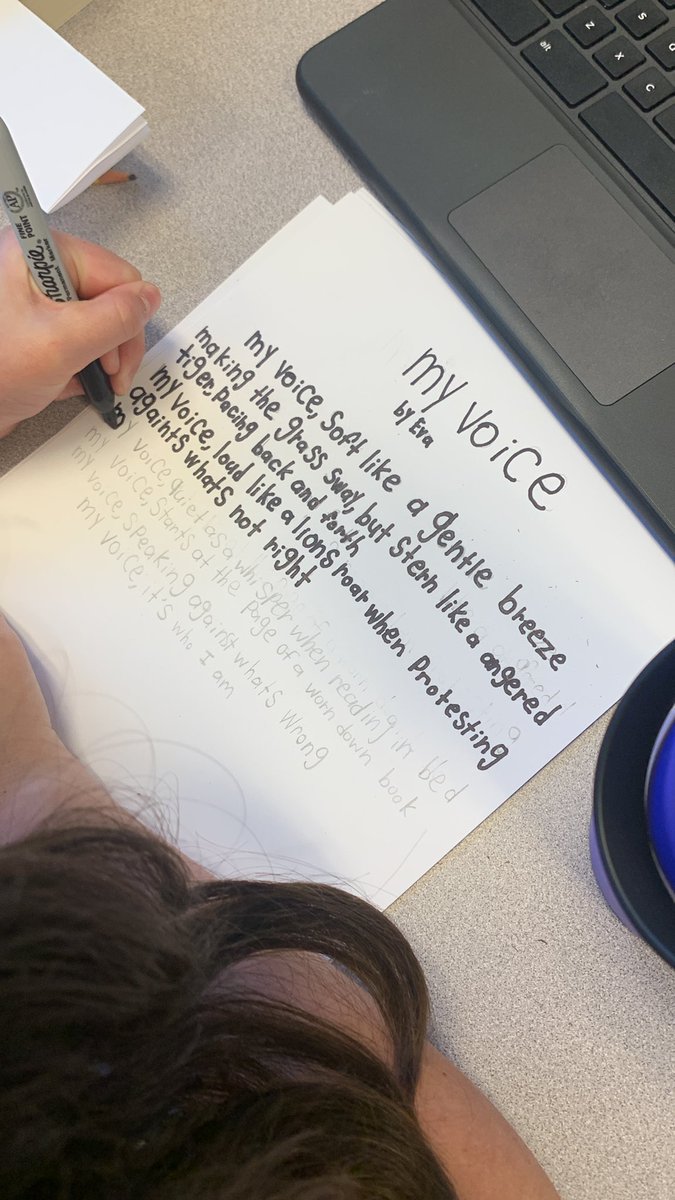 my voice
by Eva
my voice, soft like a gentle breeze
making the grass sway, but stern like a angered
tiger pacing back and forth
my voice, loud like a lions roar when protesting
againts whats not right
my voice, quiet as a whisper when reading in bed
my voice, stants at the page of a worn down book
my voice, speaking against whats wrong
my voice, it's who I am
Sharpie
FINE POINT
AP
alt
z
x
c
s